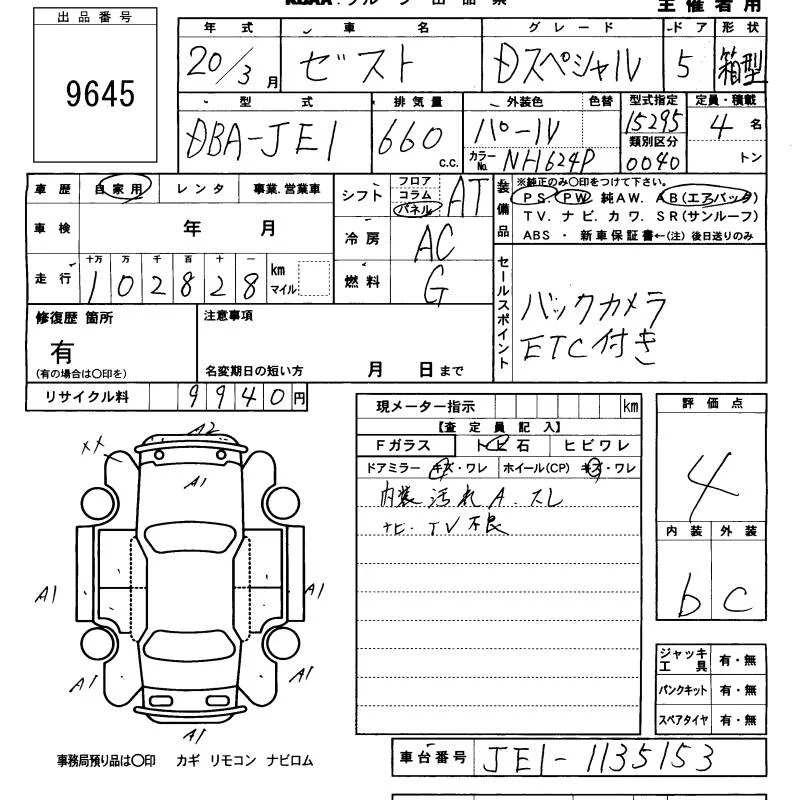 主催者用
出品番号
9645
年式 車名 グレード ドア 形状
20/3月 ゼスト Dスペシャル 5 箱型
型式 排気量 外装色 色替 型式指定 定員・積載
DBA-JE1 660 c.c. パール 15295 4名
カラーNo. NH624P 類別区分 0040 トン
車歴 自家用 レンタ 事業.営業車
シフト フロア コラム パネル AT
装備品 ※純正のみ○印をつけて下さい。
PS PW 純AW. AB(エアバック)
TV. ナビ. カワ. SR(サンルーフ)
ABS ・ 新車保証書←(注) 後日送りのみ
車検 年 月
冷房 AC
走行 十万 万 千 百 十 一
102828 km マイル
燃料 G
セールスポイント
バックカメラ
ETC付き
修復歴 箇所 注意事項
有
(有の場合は○印を) 名変期日の短い方 月 日まで
リサイクル料 9940円
現メーター指示 km
【査定員記入】
Fガラス トビ石 ヒビワレ
ドアミラー キズ・ワレ ホイール(CP) キズ・ワレ
内装 汚れ A.スレ
ナビ.TV不良
評価点
4
内装 外装
b c
A2
XX
A1
A1
A1
A1
A1
A1
ジャッキ工具 有・無
パンクキット 有・無
スペアタイヤ 有・無
事務局預り品は○印 カギ リモコン ナビロム
車台番号 JE1-1135153